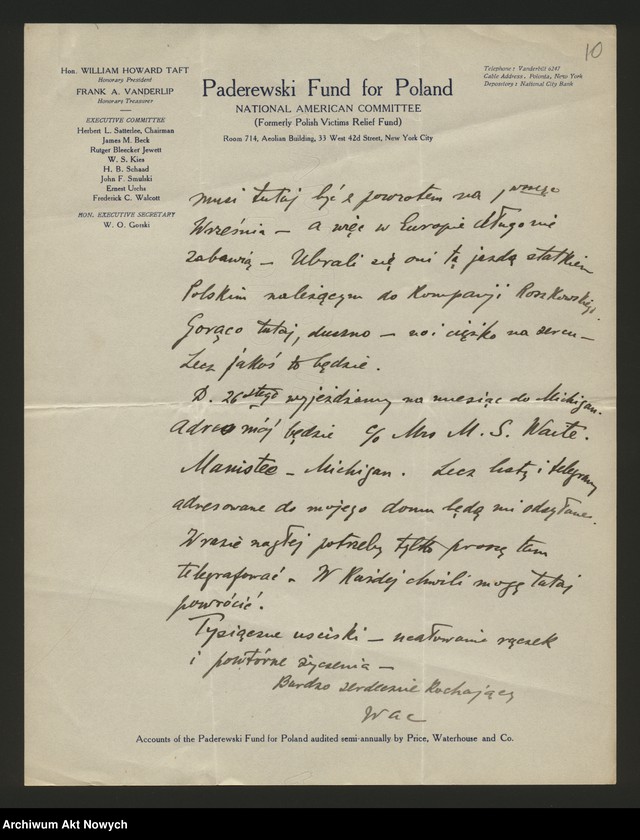 10
Hon. WILLIAM HOWARD TAFT
Honorary President
FRANK A. VANDERLIP
Honorary Treasurer
EXECUTIVE COMMITTEE
Herbert L. Satterlee, Chairman
James M. Beck
Rutger Bleecker Jewett
W. S. Kies
H. B. Schaad
John F. Smulski
Ernest Urchs
Frederic C. Walcott
HON. EXECUTIVE SECRETARY
W. O. Gorski
Paderewski Fund for Poland
NATIONAL AMERICAN COMMITTEE
(Formerly Polish Victims Relief Fund)
Room 714, Aeolian Building, 33 West 42d Street, New York City
Telephone: Vanderbilt 6247
Cable Address, Polonia, New York
Depository: National City Bank
musi tutaj być z powrotem na
Września – a więc w Europie długo nie
zabawią – Ubrali się oni tą jazdą statkiem
Polskim należącym do Kompanji Roszkowskiego.
Gorąco tutaj, duszno – no i ciężko na sercu –
Lecz jakoś to będzie.
D. 26 wyjeżdżamy na miesiąc do Michigan.
Adres mój będzie c/o Mrs M. S. Waite.
Manistee – Michigan. Lecz listy i telegramy
adresowane do mojego domu będą mi odsyłane.
W razie nagłej potrzeby tylko proszę tam
telegrafować. W każdej chwili mogę tutaj
powrócić.
Tysiączne uściski – ucałowania rączek
i powtórne życzenia –
Bardzo serdecznie kochający
Wac
Accounts of the Paderewski Fund for Poland audited semi-annually by Price, Waterhouse and Co.
Archiwum Akt Nowych